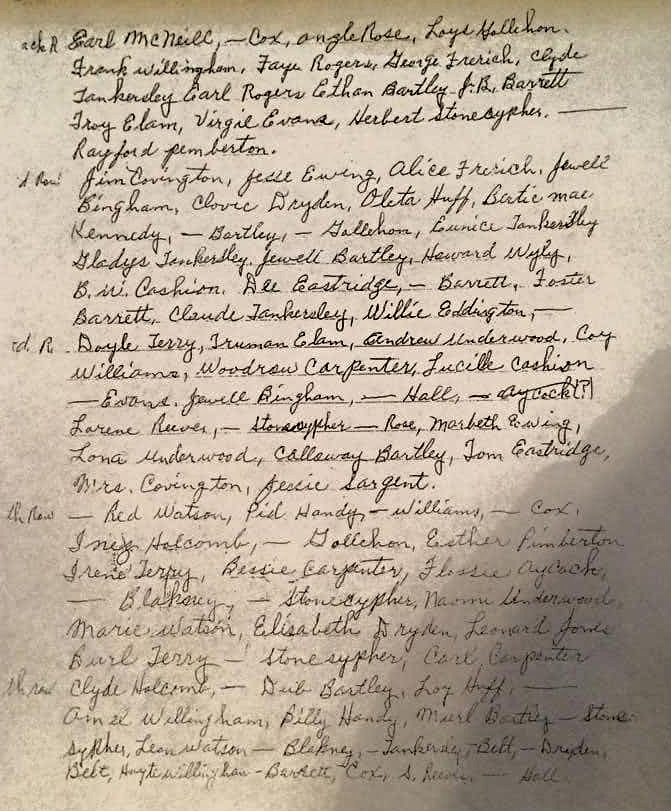 ack R Earl McNeill, — Cox, angle Rose, Loys Gollehon.
Frank Willingham, Faye Rogers, George Frerich, Clyde
Tankersley Earl Rogers Ethan Bartley J.B. Barrett
Troy Elam, Virgil Evans, Herbert Stonecypher. —
Rayford pemberton.
d Row Jim Covington, Jesse Ewing, Alice Frerich, Jewell
Bingham, Clovic Dryden, Oleta Huff, Bertie mae
Kennedy, — Bartley, — Gollehon, Eunice Tankersley
Gladys Tankersley, Jewell Bartley, Howard Wyly,
B.W. Cashion. Dee Eastridge, — Barrett, Foster
Barrett, Claude Tankersley, Willie Eddington, —
rd. R. Doyle Terry, Truman Elam, Andrew Underwood, Coy
Williams, Woodrow Carpenter, Lucille Cashion
— Evans. Jewell Bingham, — Hall, — aycock(?)
Lorene Reeves, — Stonesypher — Rose, Marbeth Ewing,
Lona Underwood, Callaway Bartley, Tom Eastridge,
Mrs. Covington, Jessie Sargent.
th Row — Red Watson, Pid Handy, — Williams, — Cox.
Inez Holcomb, — Gollehon, Esther Pimberton
Irene Terry, Bessie Carpenter, Flossie Aycock,
— Blakney, — Stonecypher, Naomi Underwood,
Marie Watson, Elisabeth Dryden, Leonard Jones
Burl Terry — Stonesypher, Carl Carpenter
th row Clyde Holcomb, — Dub Bartley, Loy Huff, —
Amel Willingham, Billy Handy, Murl Bartley — Stone-
sypher, Leon Watson — Blakney, — Tankersley, Belt, — Dryden,
Belt, Hoyte Willingham — Barrett, Cox, S. Reeves, — Hall